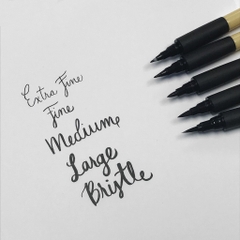 Extra Fine
Fine
Medium
Large
Bristle